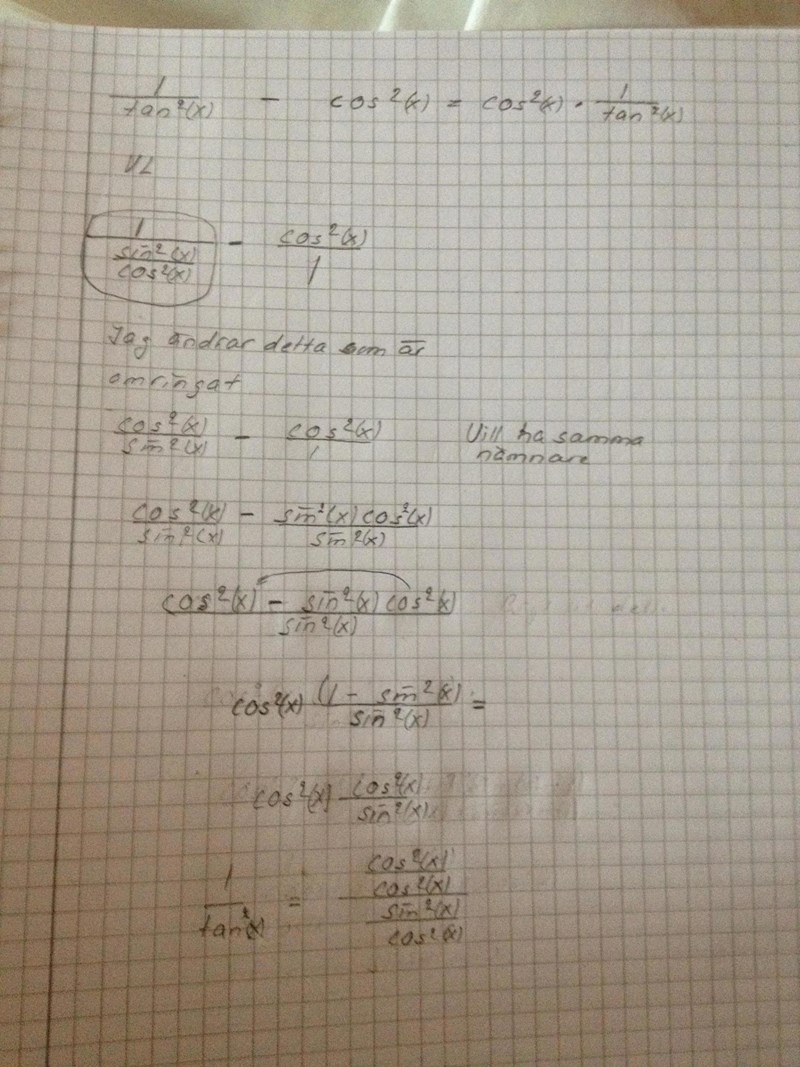 1/tan²(x) - cos²(x) = cos²(x) · 1/tan²(x)
VL
1/(sin²(x)/cos²(x)) - cos²(x)/1
Jag ändrar detta som är
omringat
cos²(x)/sin²(x) - cos²(x)/1 Vill ha samma
nämnare
cos²(x)/sin²(x) - sin²(x)cos²(x)/sin²(x)
(cos²(x) - sin²(x)cos²(x))/sin²(x)
cos²(x) (1 - sin²(x)/sin²(x) =
cos²(x) cos²(x)/sin²(x)
1/tan²(x) = (cos²(x)/cos²(x))/(sin²(x)/cos²(x))